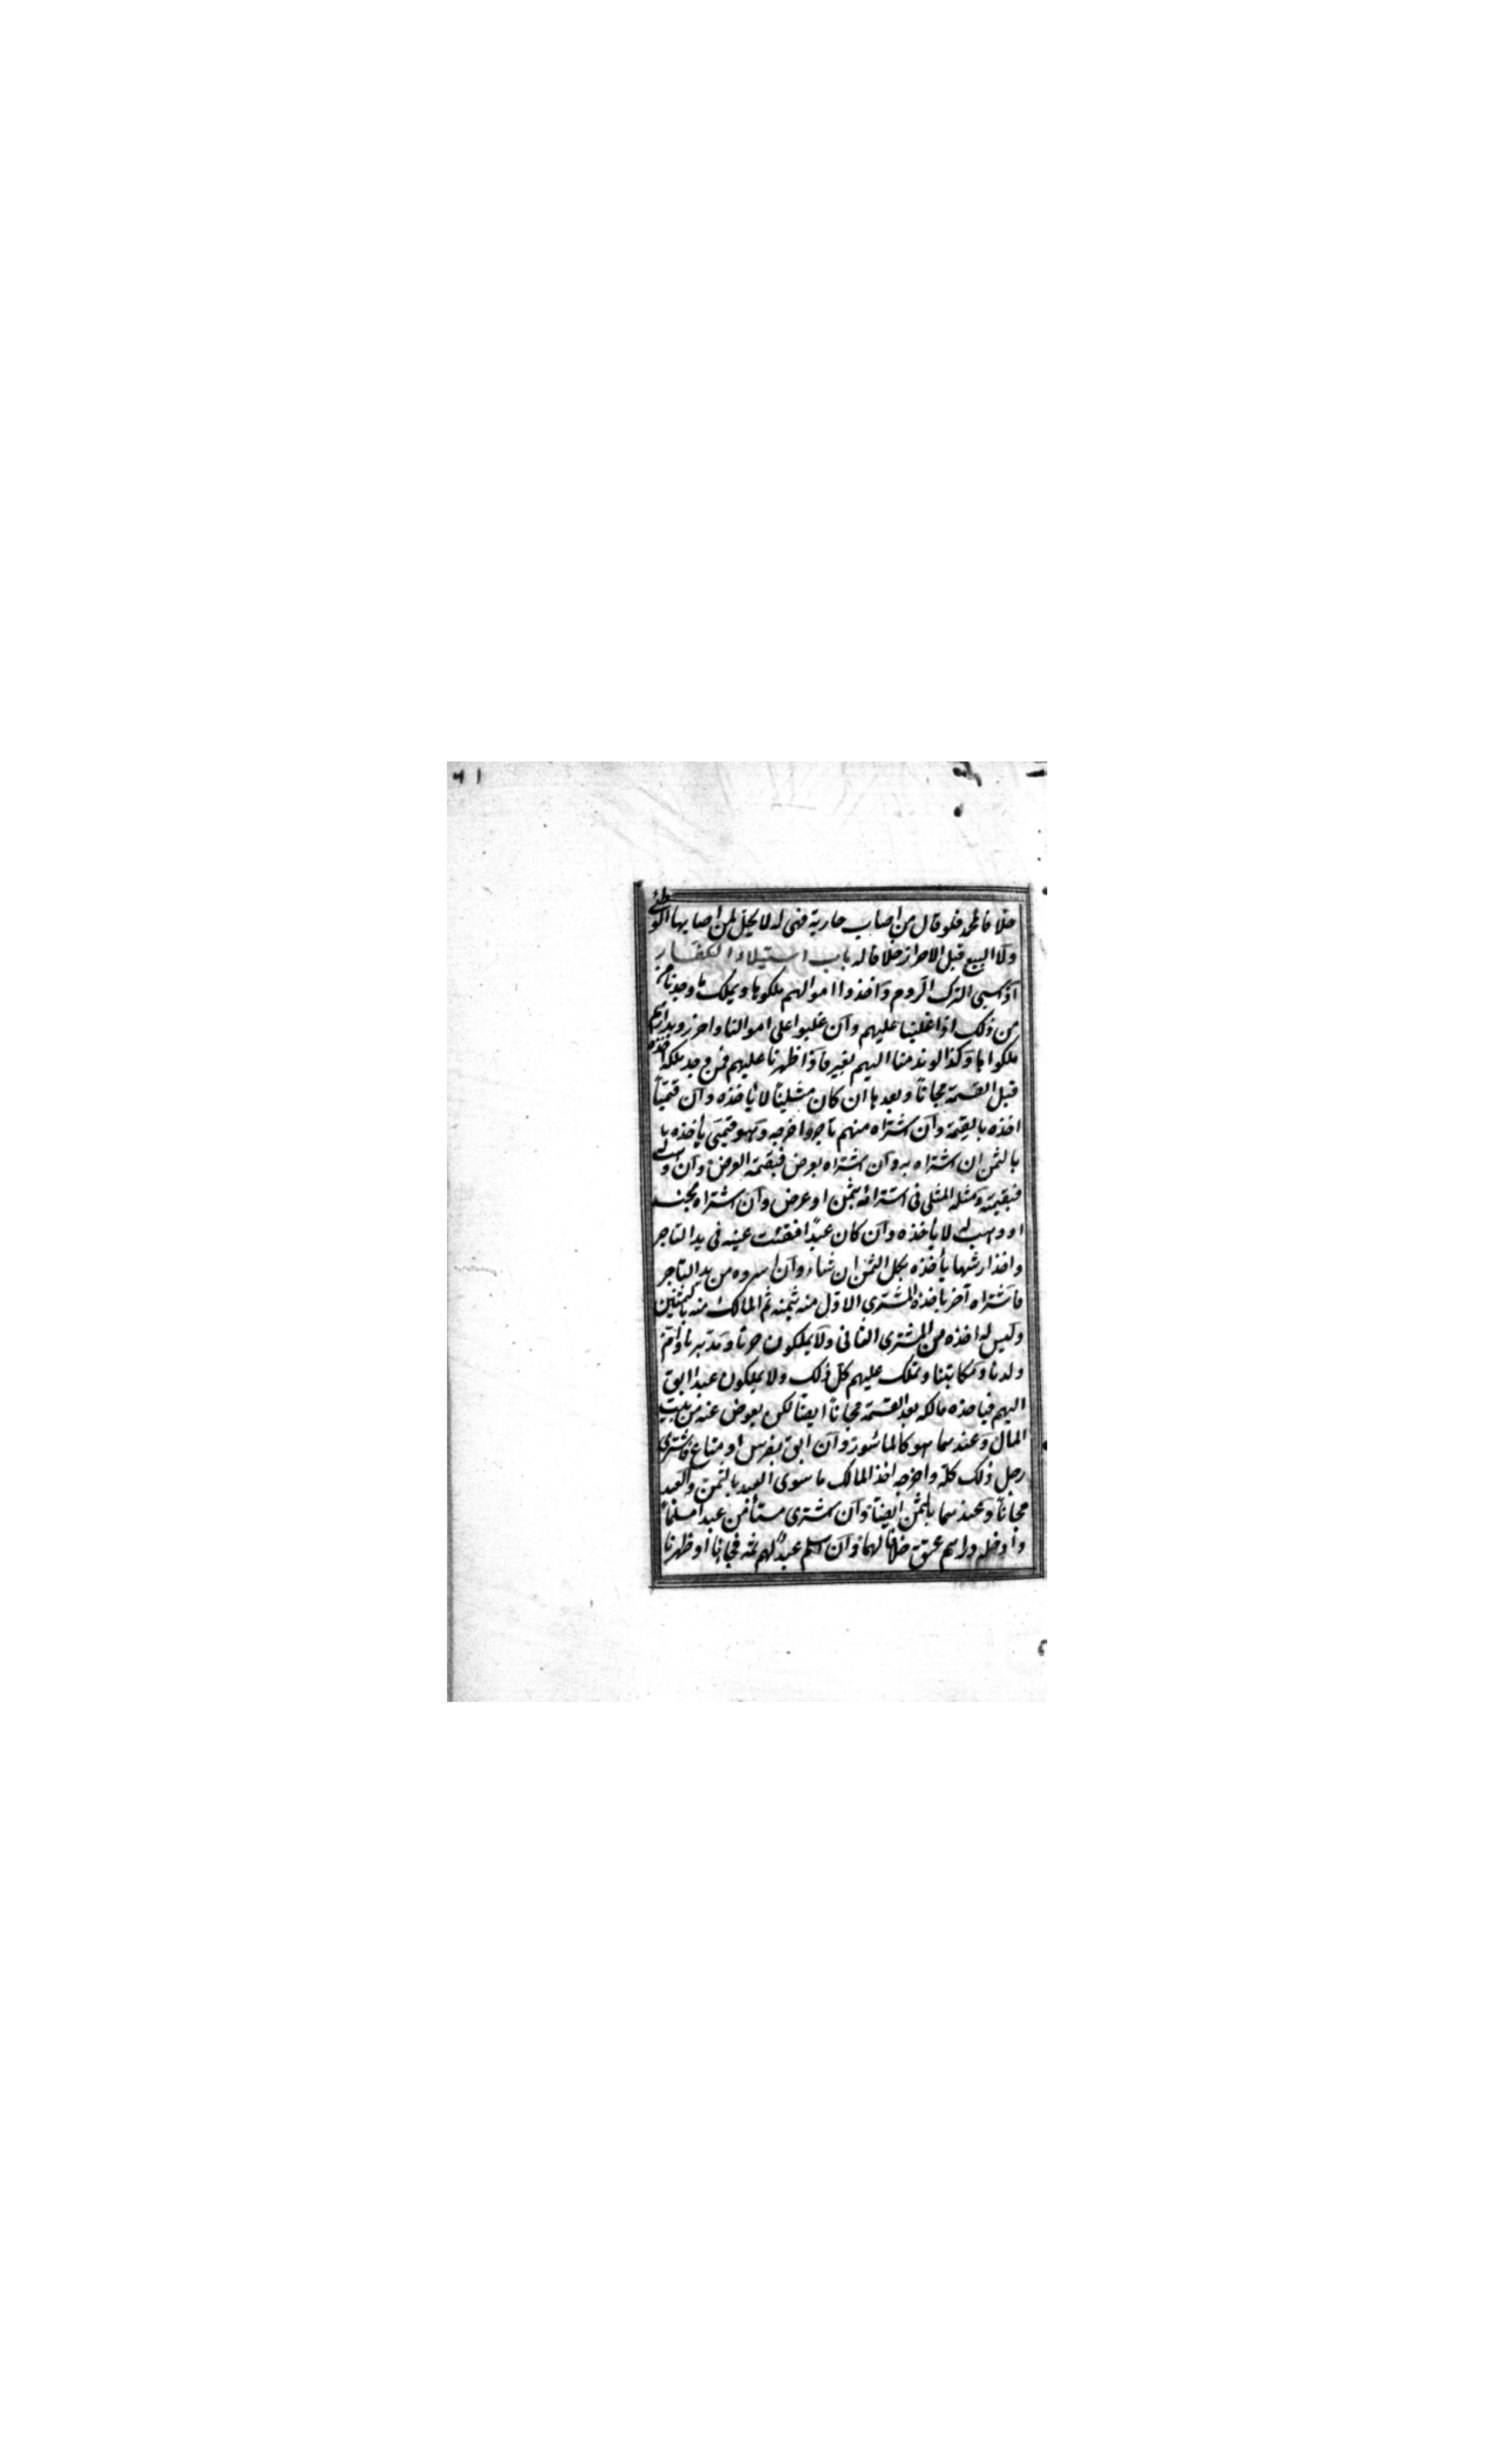 خلافا لمحمد فلو قال من اصاب جارية فهى له لا يحل لمن اصابها الوطئ
ولا البيع قبل الاحراز خلافا له باب استيلاء الكفار
اذا سبى الترك الروم واخذوا اموالهم ملكوها ويملك ما وجدنا
من ذلك اذا غلبنا عليهم وان غلبوا على اموالنا واحرزوا بدارهم
ملكوها وكذا لو ند منا اليهم بعير فاذا ظهرنا عليهم فمن وجد ملكه اخذه
قبل القسمة مجانا وبعدها ان كان مثليا لا ياخذه وان قيميا
اخذه بالقيمة وان اشتراه منهم تاجر واخرجه وهو قيمى يأخذه با
بالثمن ان اشتراه به وان اشتراه بعرض فبقيمة العرض وان وهب له
فبقيمته ومثله المثلى فى اشترائه بثمن او عرض وان اشتراه بجنسه
او وهب له لا يأخذه وان كان عبدا ففقئت عينه فى يد التاجر
واخذ ارشها يأخذه بكل الثمن ان شاء وان اسروه من يد التاجر
فاشتراه آخر ياخذه المشترى الاول منه بثمنه ثم المالك منه بالثمنين
وليس له اخذه من المشترى الثانى ولا يملكون حرنا ومدبرنا وام
ولدنا ومكاتبنا ونملك عليهم كل ذلك ولا يملكون عبدا ابق
اليهم فياخذه مالكه بعد القسمة مجانا ايضا لكن يعوض عنه من بيت
المال وعندهما هو كالماسور وان ابق بفرس او متاع فاشترى
رجل ذلك كله واخرجه اخذ المالك ما سوى العبد بالثمن والعبد
مجانا وعندهما بالثمن ايضا وان اشترى مستأمن عبدا مسلما
وادخله دارهم عتق خلافا لهما وان اسلم عبد لهم ثمه فجاءنا او ظهرنا